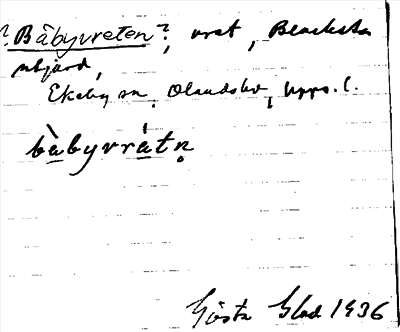 ? Båbyvreten ?, vret, Blacksta
utjord,
Ekeby sn, Olandshd, Upps. l.
bàbyvrátṇ
Gösta Glad 1936